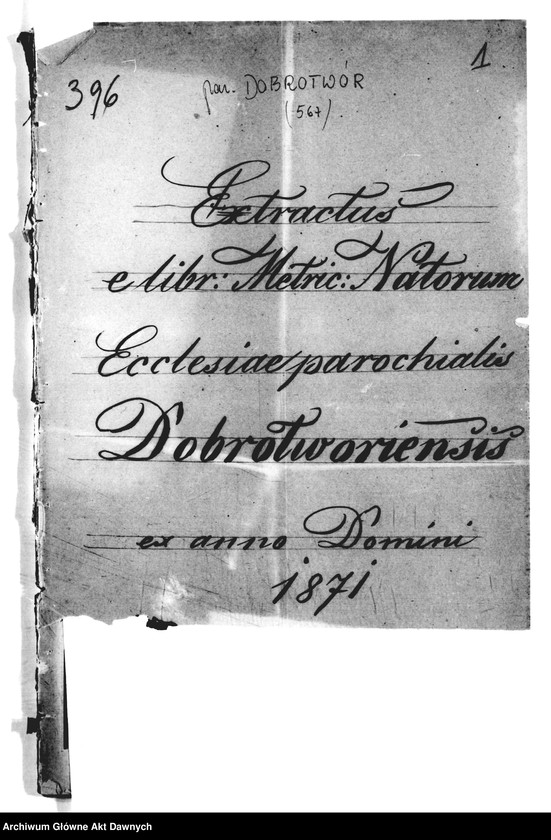 1
396
par. DOBROTWÓR
(567)
Extractus
e libr: Metric: Natorum
Ecclesiae parochialis
Dobrotworiensis
ex anno Domini
1871
Archiwum Główne Akt Dawnych